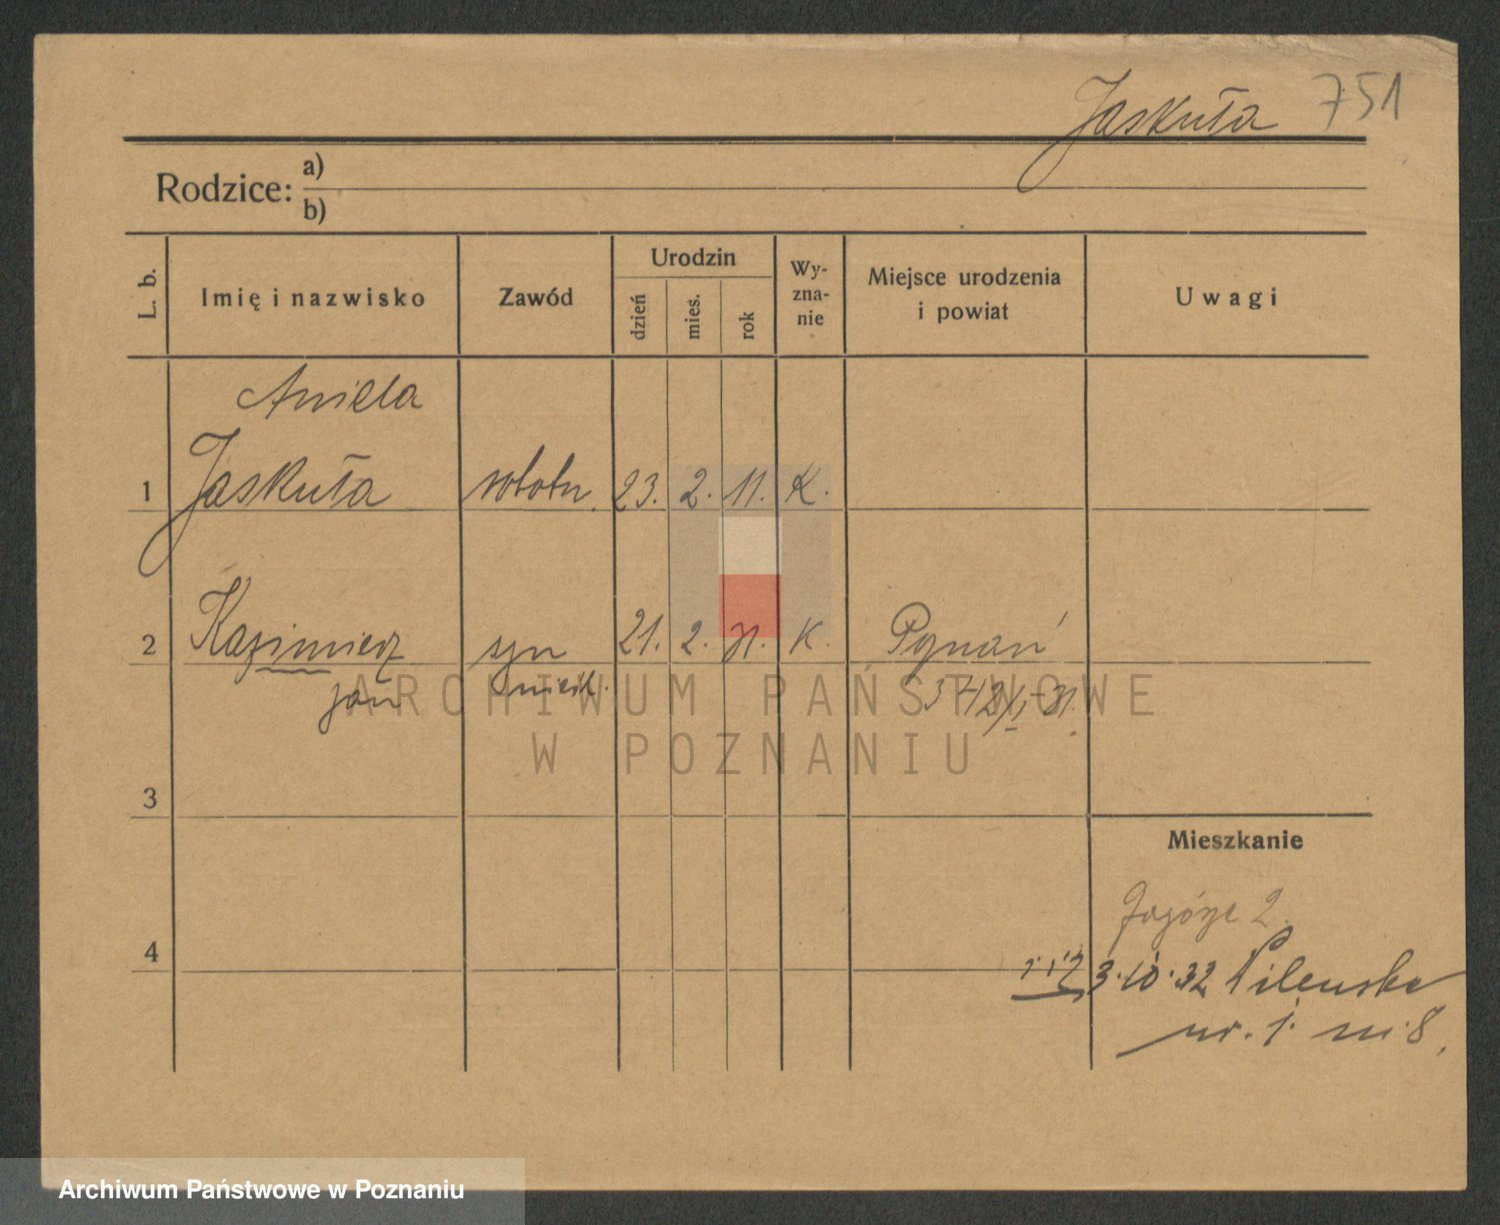 Jaskuła 751
Rodzice: a)
b)
L. b. Imię i nazwisko Zawód Urodzin dzień mies. rok Wy-zna-nie Miejsce urodzenia i powiat Uwagi
Aniela
1 Jaskuła robotn. 23. 2. 11. K.
2 Kazimierz syn 21. 2. 31. K. Poznań
Jan
ARCHIWUM PAŃSTWOWE
W POZNANIU
3
Mieszkanie
4
3.10.32
nr. 1. m. 8.
Archiwum Państwowe w Poznaniu